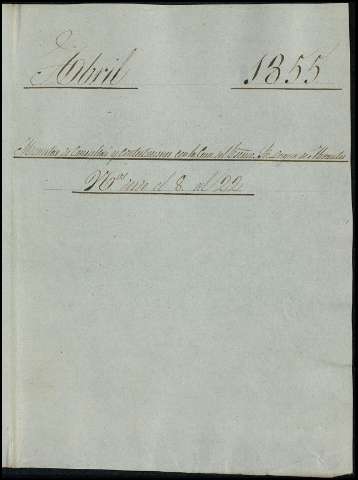 Abril 1855
Minutas de Consultas y contestaciones con la Casa del Excmo. Sr. Duque de
Nos. del 8 al 22